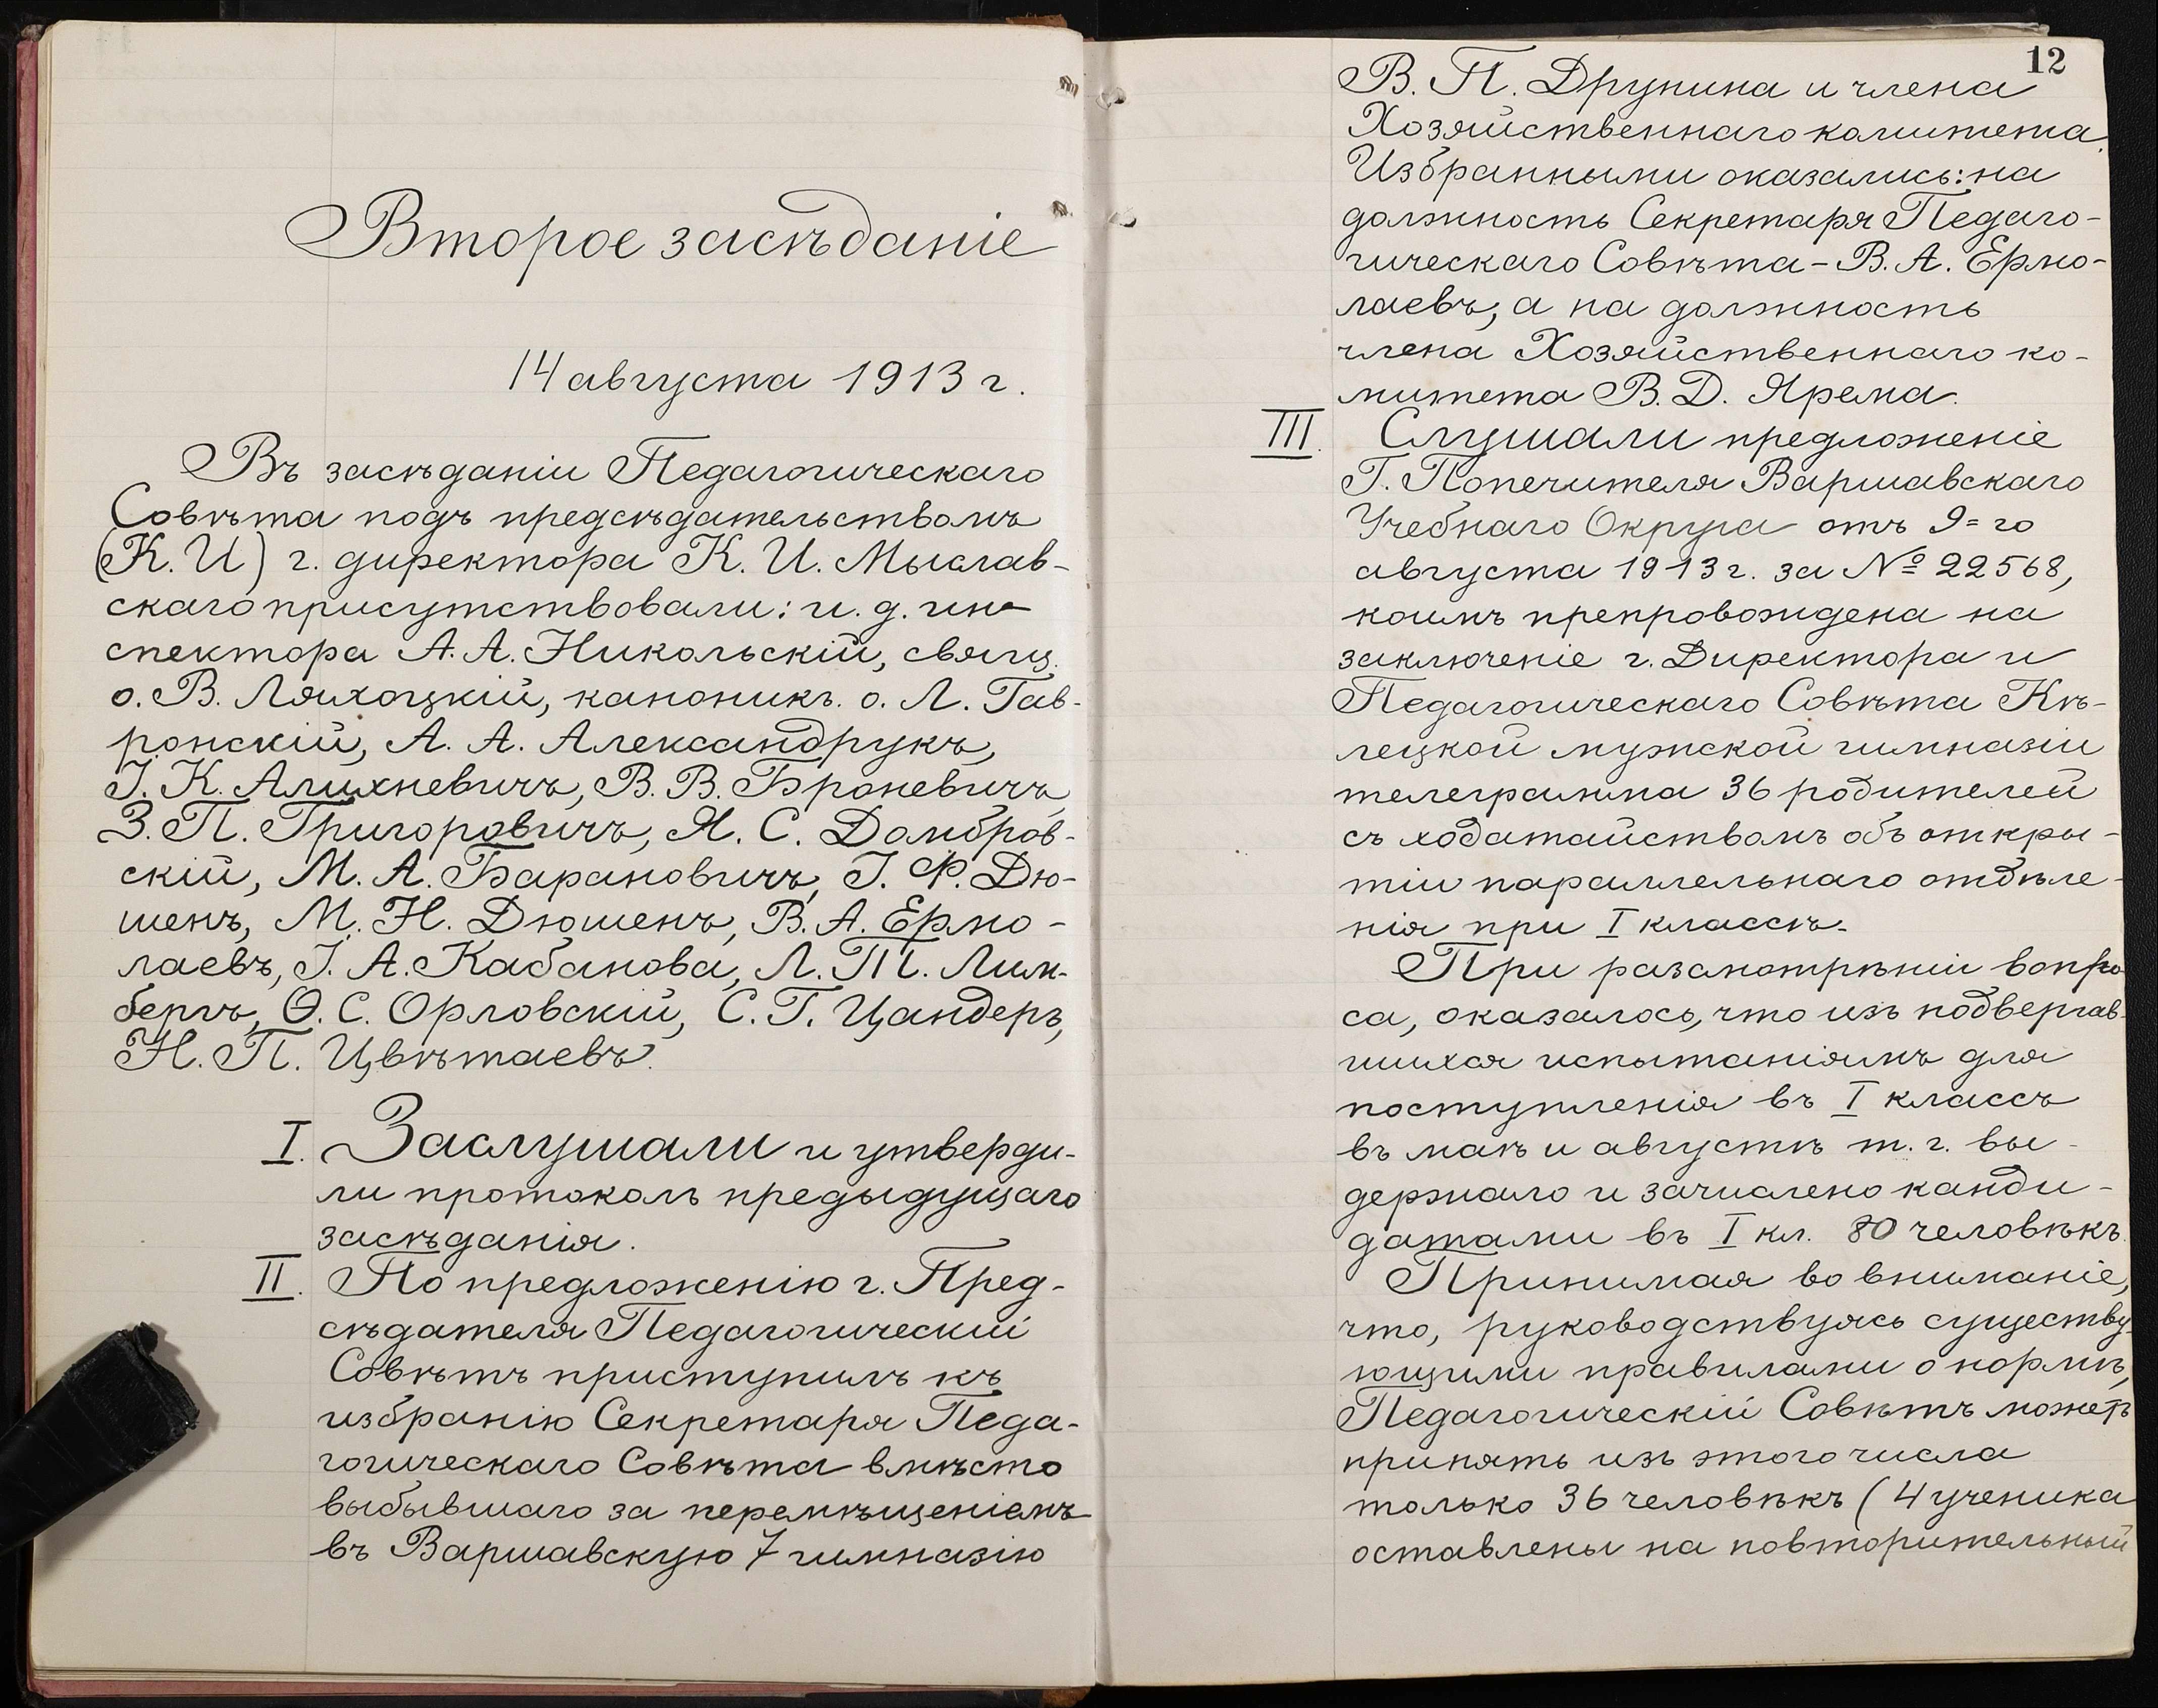 Второе засѣданіе
14 августа 1913 г.
Въ засѣданіи Педагогическаго
Совѣта подъ предсѣдательствомъ
(К. И) г. директора К. И. Мыслав-
скаго присутствовали: и. д. ин-
спектора А. А. Никольскій, свящ.
о. В. Ляхоцкій, каноникъ о. Л. Гав-
ронскій, А. А. Александрукъ,
І. К. Алихневичъ, В. В. Броневичъ,
З. П. Григоровичъ, Я. С. Домбров-
скій, М. А. Барановичъ, І. Ф. Дю-
шенъ, М. Н. Дюшенъ, В. А. Ермо-
лаевъ, І. А. Кабанова, Л. П. Лим-
бергъ, Ѳ. С. Орловскій, С. Г. Цандеръ,
Н. П. Цвѣтаевъ.
I. Заслушали и утверди-
ли протоколъ предыдущаго
засѣданія.
II. По предложенію г. Пред-
сѣдателя Педагогическій
Совѣтъ приступилъ къ
избранію Секретаря Педа-
гогическаго Совѣта вмѣсто
выбывшаго за перемѣщеніемъ
въ Варшавскую 7 гимназію
12
В. П. Друнина и члена
Хозяйственнаго комитета.
Избранными оказались: на
должность Секретаря Педаго-
гическаго Совѣта - В. А. Ермо-
лаевъ, а на должность
члена Хозяйственнаго ко-
митета В. Д. Ярема.
III. Слушали предложеніе
Г. Попечителя Варшавскаго
Учебнаго Округа отъ 9=го
августа 1913 г. за № 22568,
коимъ препровождена на
заключеніе г. Директора и
Педагогическаго Совѣта Кѣ-
лецкой мужской гимназіи
телеграмма 36 родителей
съ ходатайствомъ объ откры-
тіи параллельнаго отдѣле-
нія при I классѣ.
При разсмотрѣніи вопро-
са, оказалось, что изъ подвергав-
шихся испытаніямъ для
поступленія въ I классъ
въ маѣ и августѣ т. г. вы-
держало и зачислено канди-
датами въ I кл. 80 человѣкъ.
Принимая во вниманіе,
что, руководствуясь существу-
ющими правилами о нормѣ,
Педагогическій Совѣтъ можетъ
принять изъ этого числа
только 36 человѣкъ (4 ученика
оставлены на повторительный